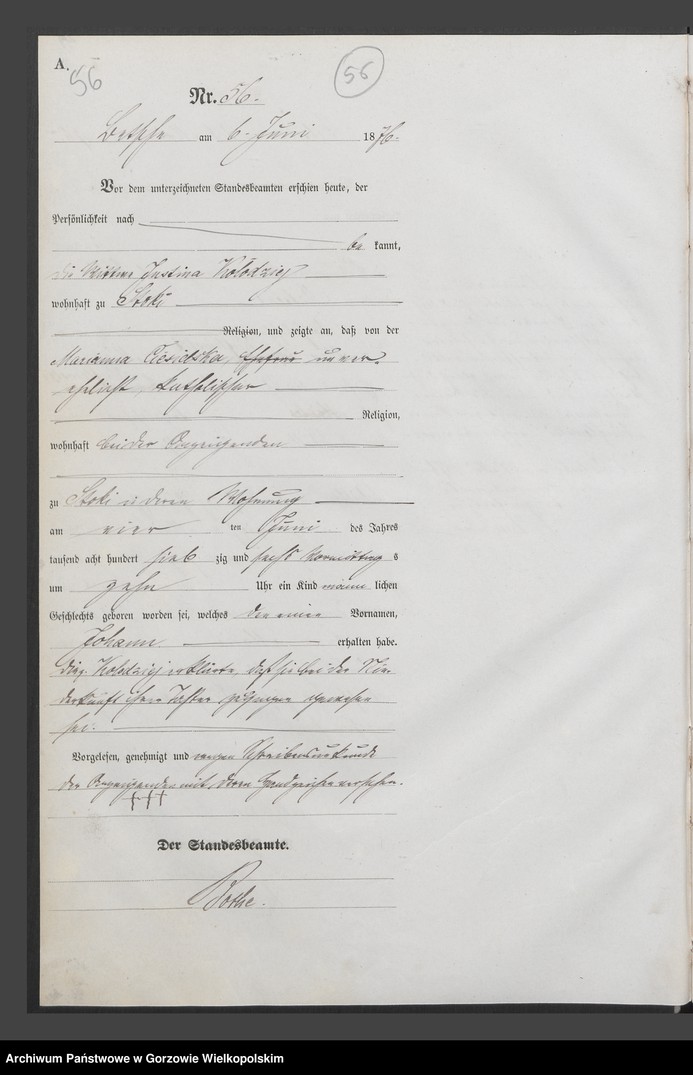 A.
56
56
Nr. 56.
Betsche am 6. Juni 1876.
Vor dem unterzeichneten Standesbeamten erschien heute, der
Persönlichkeit nach
be kannt,
die Wittwe Justina Kolodziej
wohnhaft zu Stoki
Religion, und zeigte an, daß von der
Marianna Ciesielska, Ehefrau unver-
ehelicht, katholischer
Religion,
wohnhaft bei der Anzeigenden
zu Stoki in deren Wohnung
am vier ten Juni des Jahres
tausend acht hundert sieb zig und sechs Vormittag s
um zehn Uhr ein Kind männ lichen
Geschlechts geboren worden sei, welches den einen Vornamen,
Johann erhalten habe.
Die p. Kolodziej erklärte, daß sie bei der Nie-
derkunft ihrer Tochter zugegen gewesen
sei.
Vorgelesen, genehmigt und wegen Schreibensunkunde
der Anzeigenden mit deren Handzeichen versehen.
+++
Der Standesbeamte.
Bothe.
Archiwum Państwowe w Gorzowie Wielkopolskim